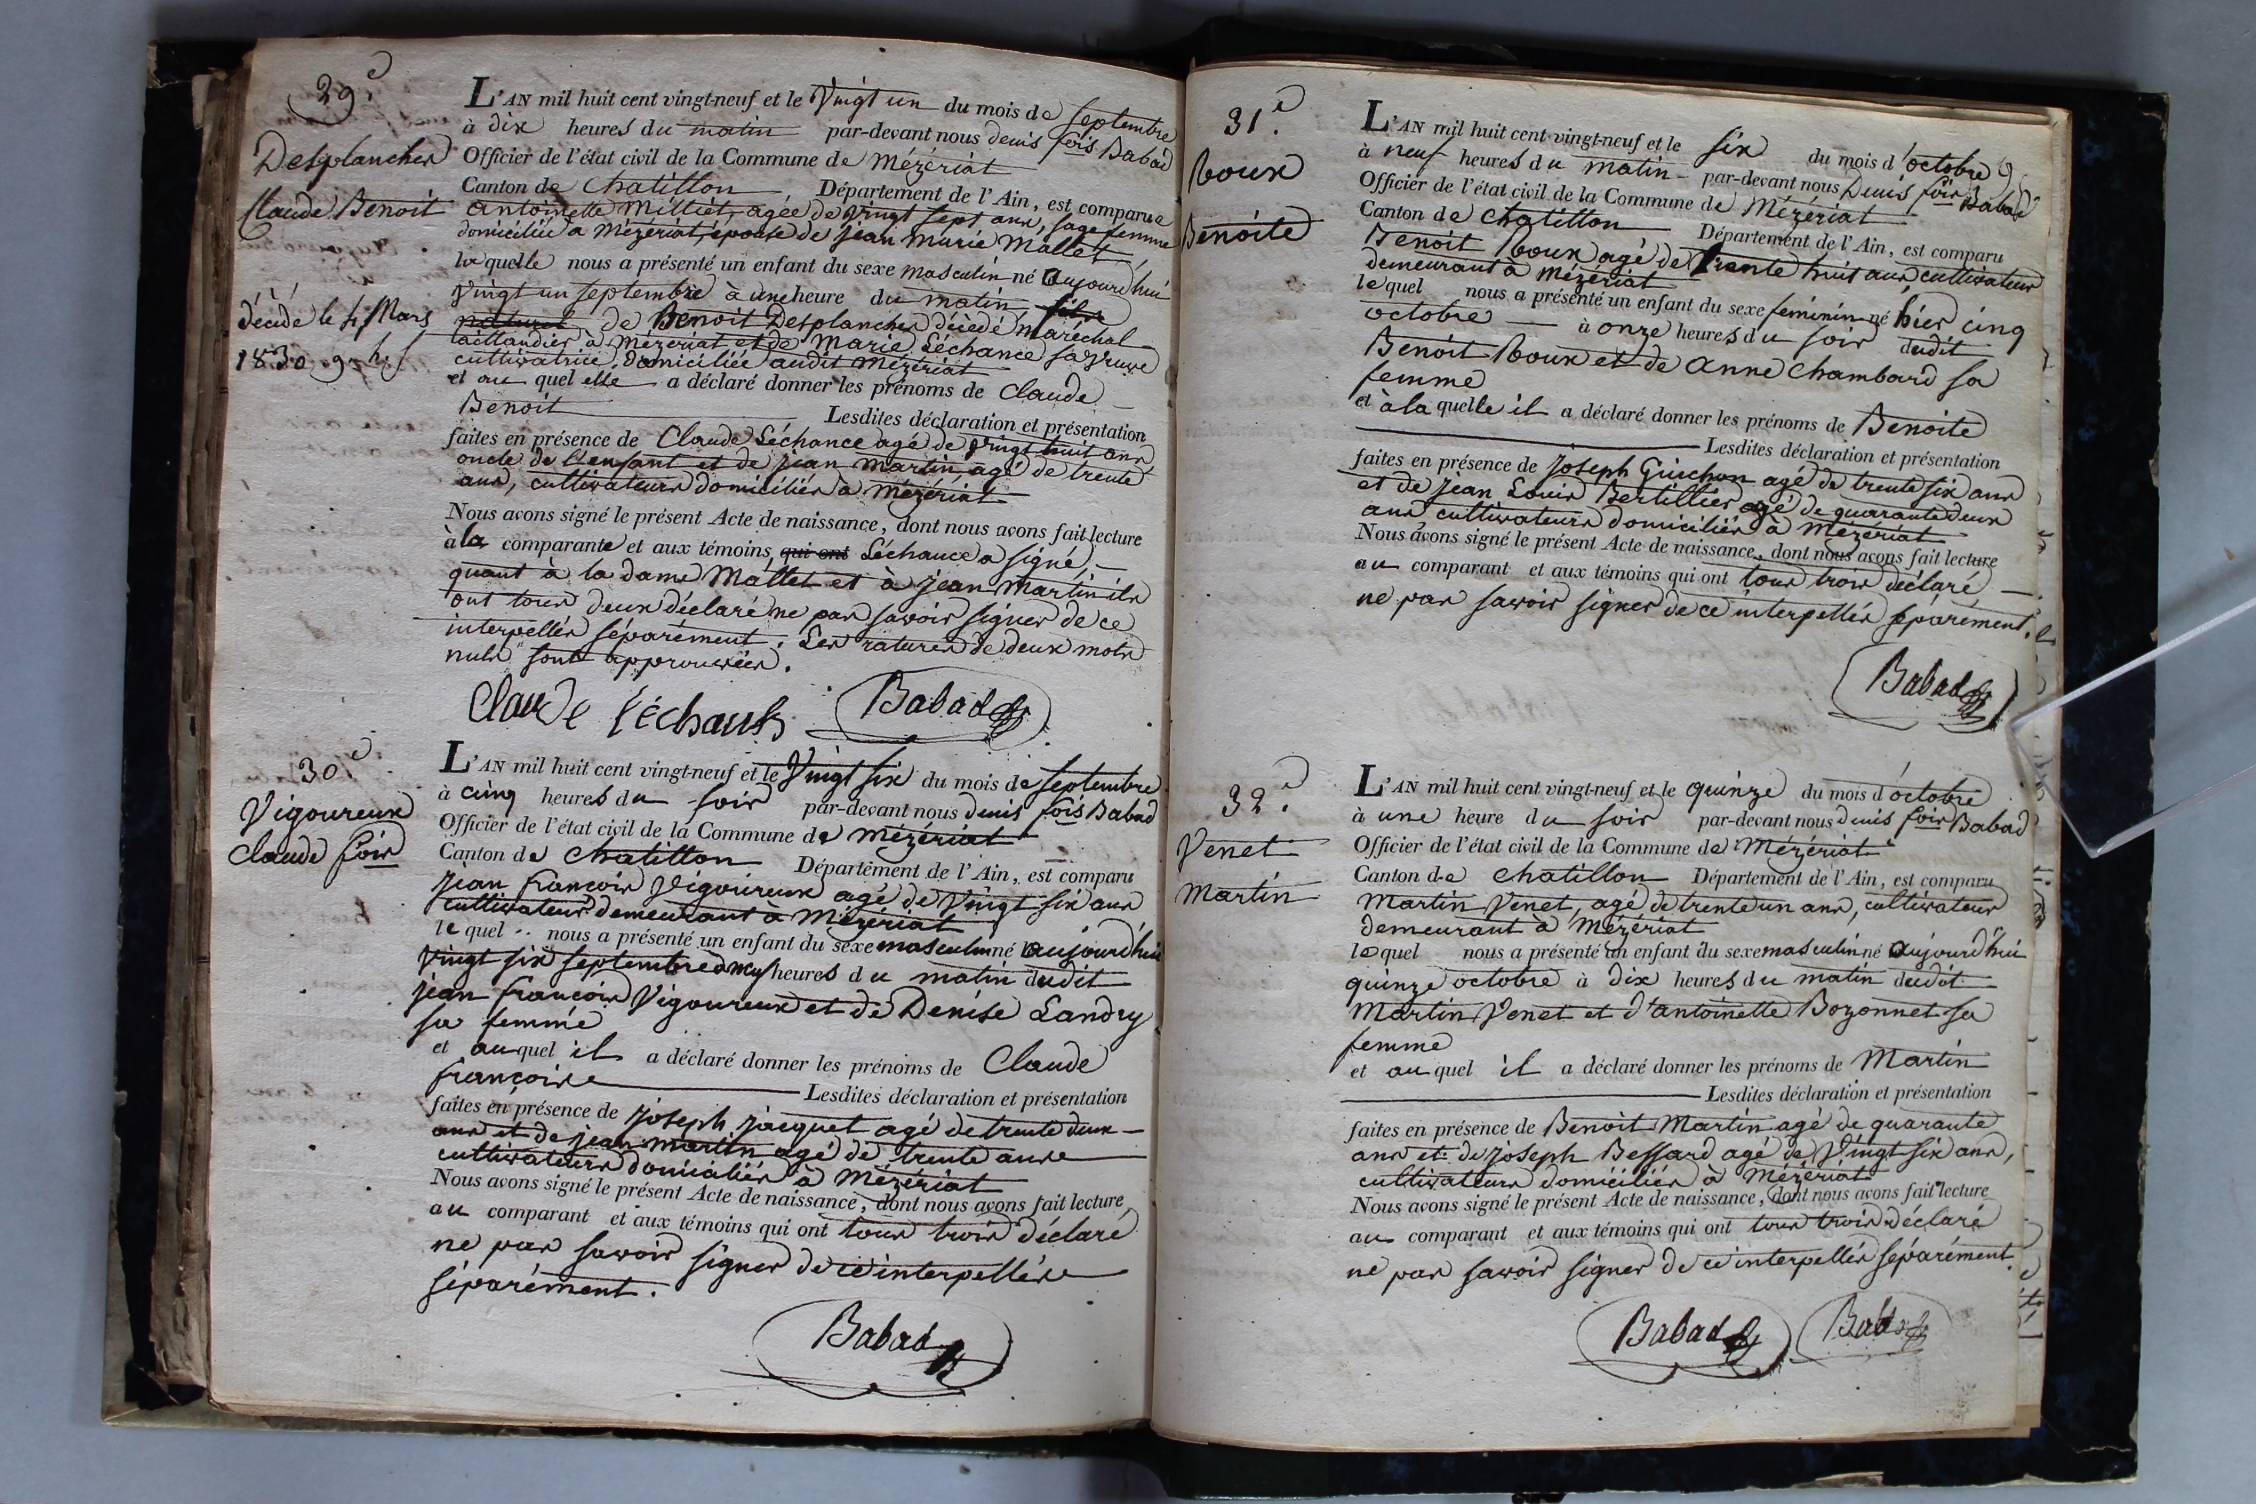 29.e
Desplanches
Claude Benoit
décédé le 4 Mars
1830
L'AN mil huit cent vingt-neuf et le Vingt un du mois de septembre
à dix heures du matin par-devant nous denis fois Babad
Officier de l'état civil de la Commune de Mézériat
Canton de Chatillon Département de l'Ain, est comparue
antoinette Milliet, agée de vingt sept ans, sage femme
domiciliée à Mézériat, épouse de jean marie Mallet,
laquelle nous a présenté un enfant du sexe masculin né aujourd'hui
vingt un septembre à une heure du matin, fils
naturel de Benoit Desplanches décédé maréchal
taillandier à Mézériat et de Marie Léchance sa veuve
cultivatrice, domiciliée audit Mézériat
et au quel elle a déclaré donner les prénoms de Claude
Benoit Lesdites déclaration et présentation
faites en présence de Claude Léchance agé de vingt huit ans
oncle de l'enfant et de jean Martin agé de trente
ans, cultivateurs domiciliés à Mézériat
Nous avons signé le présent Acte de naissance, dont nous avons fait lecture
à la comparante et aux témoins, qui ont Léchance a signé,
quant à la dame Mallet et à jean Martin ils
ont tous deux déclaré ne pas savoir signer de ce
interpellés séparément. Les ratures de deux mots
nuls sont approuvées.
Claude Léchauls Babad
30e
Vigoureux
Claude fois
L'AN mil huit cent vingt-neuf et le Vingt six du mois de septembre
à cinq heures du soir par-devant nous denis fois Babad
Officier de l'état civil de la Commune de Mézériat
Canton de Chatillon Département de l'Ain, est comparu
jean françois Vigoureux agé de Vingt six ans
cultivateur demeurant à Mézériat
lequel nous a présenté un enfant du sexe masculin né aujourd'hui
vingt six septembre à neuf heures du matin dudit
jean françois Vigoureux et de Denise Landry
sa femme
et auquel il a déclaré donner les prénoms de Claude
françois Lesdites déclaration et présentation
faites en présence de joseph jacquet agé de trente deux
ans et de jean martin agé de trente ans
cultivateurs domiciliés à Mézériat
Nous avons signé le présent Acte de naissance, dont nous avons fait lecture
au comparant et aux témoins qui ont tous trois déclaré
ne pas savoir signer de ce interpellés
séparément.
Babad
31.e
Roux
Benoite
L'AN mil huit cent vingt-neuf et le six du mois d'octobre
à neuf heures du matin par-devant nous Denis fois Babad
Officier de l'état civil de la Commune de Mézériat
Canton de Chatillon Département de l'Ain, est comparu
Benoit Roux agé de trente huit ans, cultivateur
demeurant à Mézériat
lequel nous a présenté un enfant du sexe féminin né hier cinq
octobre à onze heures du soir dudit
Benoit Roux et de Anne Chambard sa
femme
et à la quelle il a déclaré donner les prénoms de Benoite
Lesdites déclaration et présentation
faites en présence de joseph Guichon agé de trente six ans
et de jean Louis Bertillier agé de quarante deux
ans cultivateurs domiciliés à Mézériat
Nous avons signé le présent Acte de naissance, dont nous avons fait lecture
au comparant et aux témoins qui ont tous trois déclaré
ne pas savoir signer de ce interpellés séparément.
Babad
32.e
Venet
Martin
L'AN mil huit cent vingt-neuf et le quinze du mois d'octobre
à une heure du soir par-devant nous denis fois Babad
Officier de l'état civil de la Commune de Mézériat
Canton de Chatillon Département de l'Ain, est comparu
Martin Venet, agé de trente un ans, cultivateur
demeurant à Mézériat
lequel nous a présenté un enfant du sexe masculin né aujourd'hui
quinze octobre à dix heures du matin dudit
Martin Venet et d'antoinette Bozonnet sa
femme
et au quel il a déclaré donner les prénoms de Martin
Lesdites déclaration et présentation
faites en présence de Benoit Martin agé de quarante
ans et de joseph Bessard agé de Vingt six ans,
cultivateurs domiciliés à Mézériat
Nous avons signé le présent Acte de naissance, dont nous avons fait lecture
au comparant et aux témoins qui ont tous trois déclaré
ne pas savoir signer de ce interpellés séparément.
Babad Babad